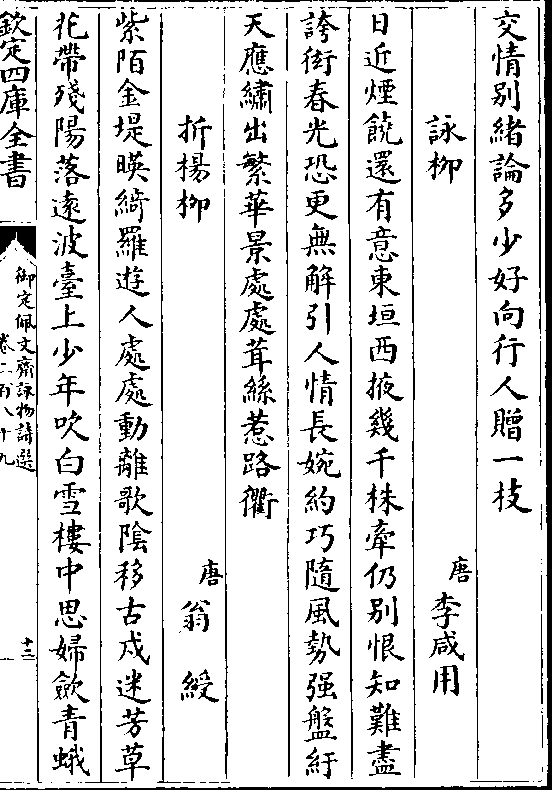 交情別緒論多少好向行人贈一枝
詠柳
唐 李咸用
日近煙饒還有意東垣西掖幾千株牽仍別恨知難盡
誇衒春光恐更無解引人情長婉約巧隨風勢强盤紆
天應繡出繁華景處處茸絲惹路衢
折楊柳
唐 翁綬
紫陌金堤暎綺羅遊人處處動離歌陰移古戍迷芳草
花帶殘陽落遠波臺上少年吹白雪樓中思婦斂青蛾
欽定四庫全書
御定佩文齋詠物詩選
卷二百八十九
十三